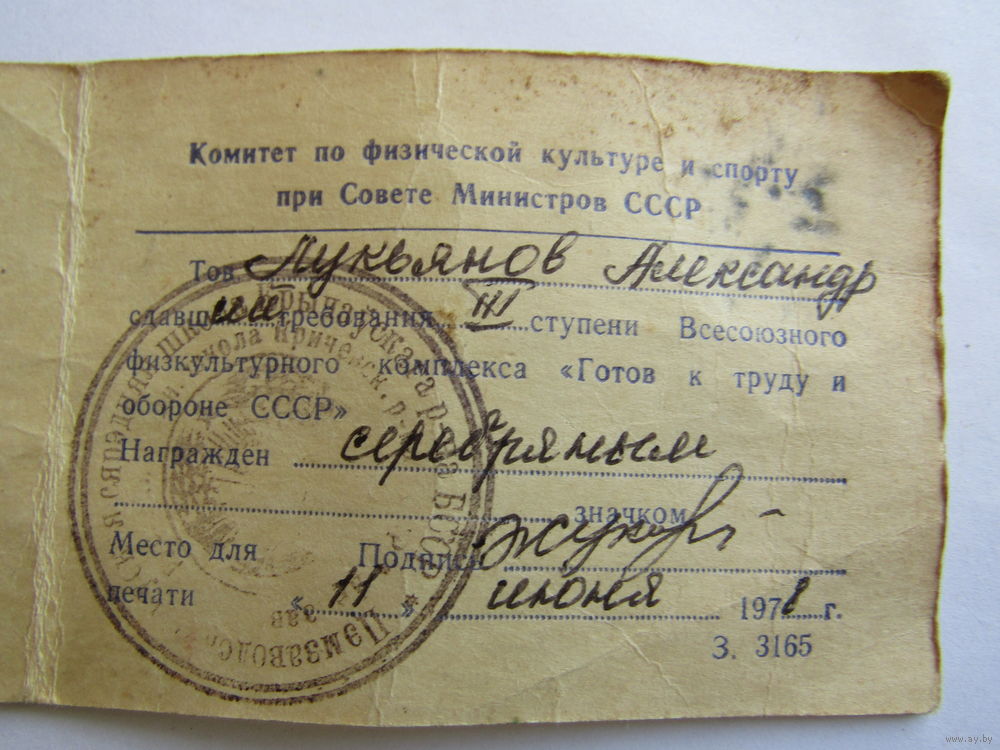 Комитет по физической культуре и спорту
при Совете Министров СССР
Тов. Лукьянов Александр
сдавший требования III ступени Всесоюзного
физкультурного комплекса «Готов к труду и
обороне СССР»
Награжден серебряным
значком
Место для Подпись
печати «11» июня 1978 г.
З. 3165
www.ay.by